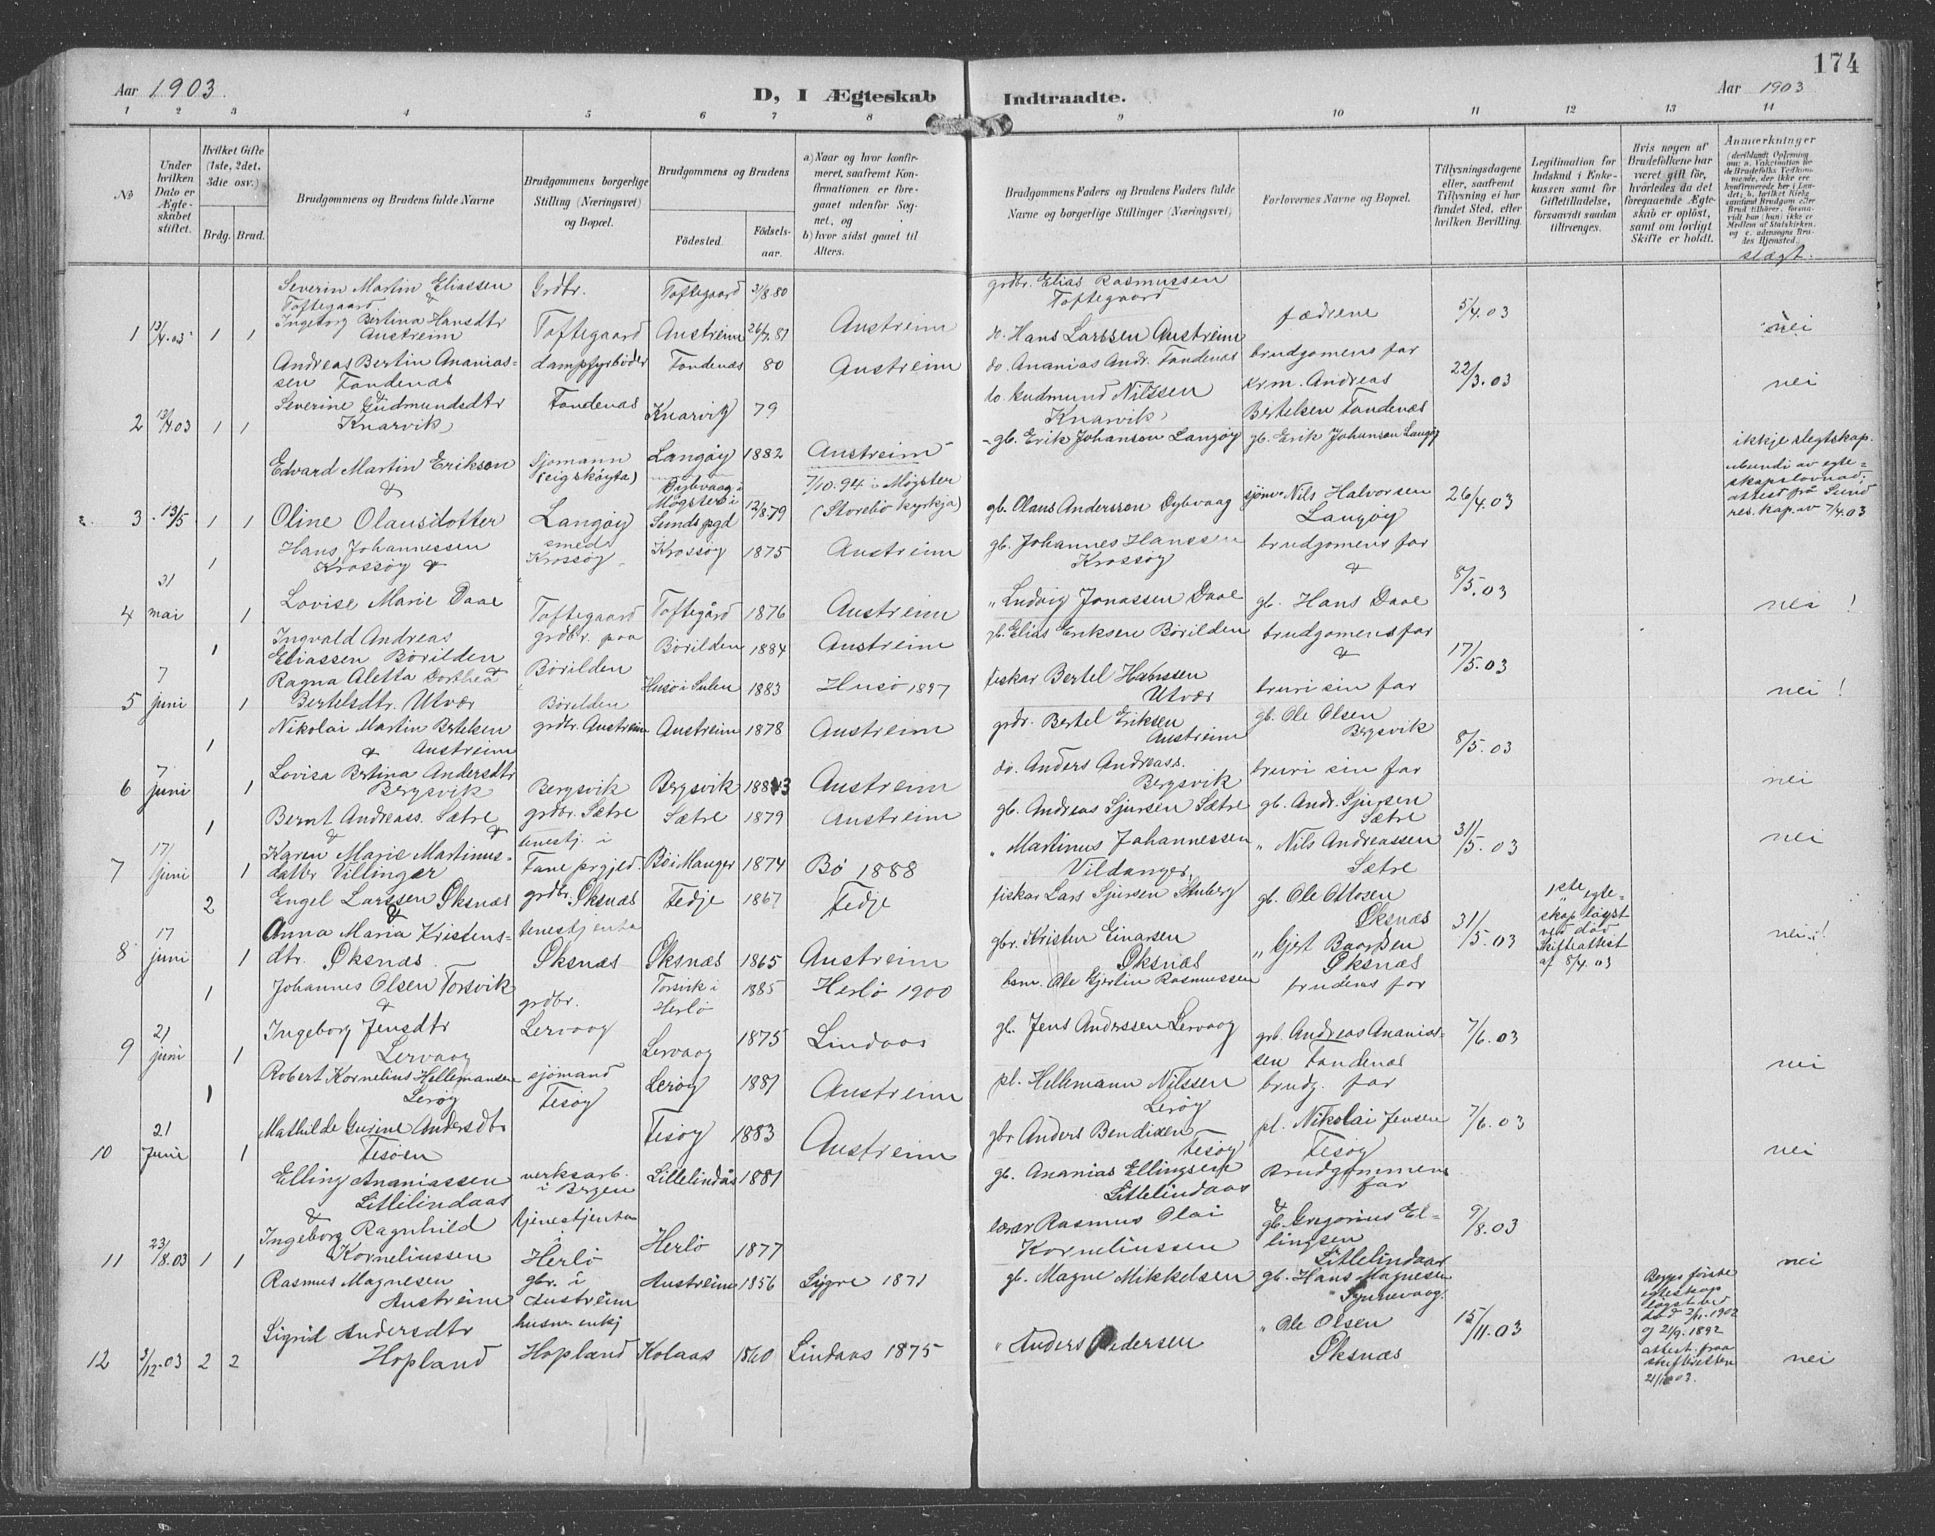 174
Aar 1903.
D, I Ægteskab
Indtraadte.
Aar 1903
1 2 3 4 5 6 7 8 9 10 11 12 13 14
No
Under hvilken Dato er Ægteskabet stiftet.
Hvilket Gifte (1ste, 2det, 3die osv.)
Brdg. Brud.
Brudgommens og Brudens fulde Navne
Brudgommens borgerlige Stilling (Næringsvei) og Bopæl.
Brudgommens og Brudens
Fødested.
Fødselsaar.
a) Naar og hvor konfirmeret, saafremt Konfirmationen er foregaaet udenfor Sognet, og
b) hvor sidst gaaet til Alters.
Brudgommens Faders og Brudens Faders fulde Navne og borgerlige Stillinger (Næringsvei)
Forlovernes Navne og Bopæl.
Tillysningsdagene eller, saafremt Tillysning ei har fundet Sted, efter hvilken Bevilling.
Legitimation for Indskud i Enkekassen samt for Giftetilladelse, forsaavidt saadan tiltrænges.
Hvis nogen af Brudefolkene har været gift før, hvorledes da det foregaaende Ægteskab er opløst, samt om lovligt Skifte er holdt.
Anmerkninger
slægt.
Severin Martin Eliassen Grdbr. Toftegaard 3/8.80 grdbr. Elias Rasmussen
Toftegaard & Toftegaard
1 13/4.03 1 1 Ingeborg Bertina Hansdtr Toftegaard Austreim 26/7.81 Austreim do. Hans Larssen Austreim fædrene 5/4.03 nei
Austreim
Andreas Bertin Ananias- dampfyrbøder Tandenas 80 Austreim do. Ananias Andr. Tandenas brudgomens far
sen Tandenas
& 22/3.03 nei
Severine Gudmundsdtr Tandenas Knarvik 79 do. Gudmund Nilssen krm. Andreas
2 13/4.03 1 1 Knarvik Knarvik Bertelsen Tandenas
Edvard Martin Erikson Sjømann Langøy 1882 Austreim gb. Erik Johanson Langøy gb. Erik Johanson Langøy ikkje slegtskap.
& 7/10.94 i Møgster
3 13/5 1 1 Oline Olausdotter Langøy Dybvaag i Møgster i Sunds pgd 12/8.79 (Storebø kyrkja) gb. Olaus Anderssen Dybvaag sjømn Nils Halvorsen Langøy 26/4.03
attest frå Sund res. kap. av 7/4.03
Hans Johannessen smed Krossøy 1875 Austreim gb. Johannes Hanssen brudgomens far
1 Krossøy & Krossøy Krossøy &
4 31 mai 1 Lovise Marie Daae Toftegaard Toftegård 1876 Austreim " Ludvig Jonassen Daae gb. Hans Daae 8/5.03 nei!
Ingvald Andreas grdbr. paa Børilden 1884 Austreim gb. Elias Eriksen Børilden brudgomens far
1 Eliassen Børilden Børilden & 17/5.03
Ragna Aletta Dorthea & Husø i Sulen 1883 Husø 1897 fiskar Bertel Hanssen bruri sin far
5 7 juni 1 Bertelsdtr. Utvær Børilden Utvær nei!
Nikolai Martin Bertelsen grdbr. Austreim Austreim 1878 Austreim grdr. Bertel Eriksen gb. Ole Olsen
1 & Austreim Austreim Bergsvik 8/5.03
Lovisa Bertina Andersdtr do. Anders Andreass.
6 7 juni 1 Bergsvik Bergsvik Bergsvik 1883 Austreim Bergsvik bruri sin far nei
1 Bernt Andreass. Sætre grdbr. Sætre Sætre 1879 Austreim gb. Andreas Sjursen Sætre gb. Andr. Sjursen Sætre
& tenestj. i 31/5.03 nei
Karen Marie Martinus- Bø i Manger 1874 Bø 1888 " Martinus Johannessen " Nils Andreassen
7 17 juni 1 datter Villinger Vildanger Sætre
2 Engel Larssen Øksnæs grdbr. Øksnæs Fedje 1867 Fedje fiskar Lars Sjursen gb. Ole Ottosen Øksnæs 1ste egteskap løyst ved død Skifteattest af 8/4.03
& Anna Maria Kristens- tenestjenta 31/5.03 nei!
8 17 juni 1 dtr. Øksnæs. Øksnæs Øksnæs 1865 Austreim gbr. Kristen Einarsen Øksnæs " Gjert Baardsen Øksnæs
1 Johannes Olsen Torsvik grdbr. Torsvik i Herlø 1885 Herlø 1900 hsm. Ole Gjertin Rasmussen brudens far
&
9 21 juni 1 Ingeborg Jensdtr Lervaag Lervaag 1875 Lindaas gb. Jens Anderssen Lervaag grb. Andreas Ananias- 7/6.03
Lervaag sen Tandenas nei
1 Robert Kornelius Hellemansen sjømand Lerøy 1881 Austreim pl. Hellemann Nilssen brudg. far
Lerøy Tesøy Lerøy
Mathilde Gurine Andersdtr Tesøy 1883 Austreim gbr Anders Bendixen pl. Nikolai Jensen 7/6.03
10 21 Juni 1 Tesøen Tesøy Tesøy nei
Elling Ananiassen verksarb. i Bergen Littelindås 1881 gb. Ananias Ellingsen Brudgommens far
Littlelindaas Littelindaas
& tjenestjenta &
Ingeborg Ragnhild Herlø 1877 lærar Rasmus Olai gb. Gregorius El- 9/8.03
11 23/8.03 1 1 Korneliussen Herlø Korneliussen lingsen Littlelindaas nei
Rasmus Magnesen gbr. i Austreim Austreim 1856 Lygre 1871 gb. Magne Mikkelsen gb. Hans Magnesen Begges første egteskap løyst ved død 2/1.1902 og 21/9.1892 attest fraa skifteretten
Austreim Synnevaag.
Sigrid Andersdtr " Ole Olsen 15/11.03
12 3/12.03 2 2 Hopland Hopland Kolaas 1860 Lindaas 1875 " Anders Pedersen Øksnæs nei